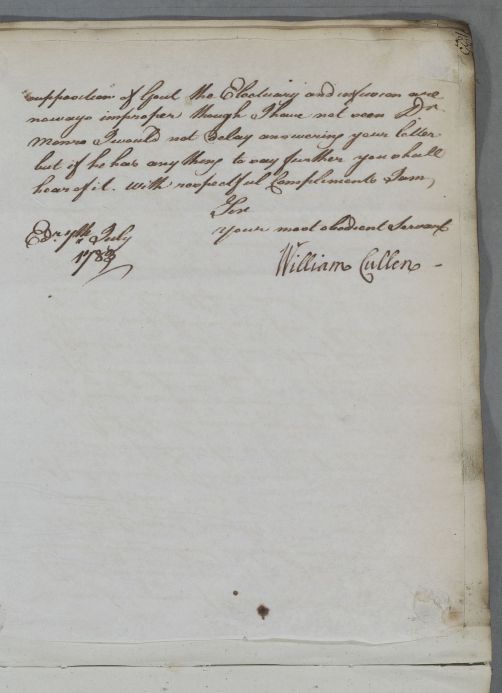 supposition of Gout the Electuary and infusion are
noways improper though I have not seen Dr.
Monro I would not delay answering your letter
but if he has any thing to say further you shall
hear of it. With respectful Compliments I am,
Sir
Your most obedient Servant
Edr. 7th July
1783
William Cullen